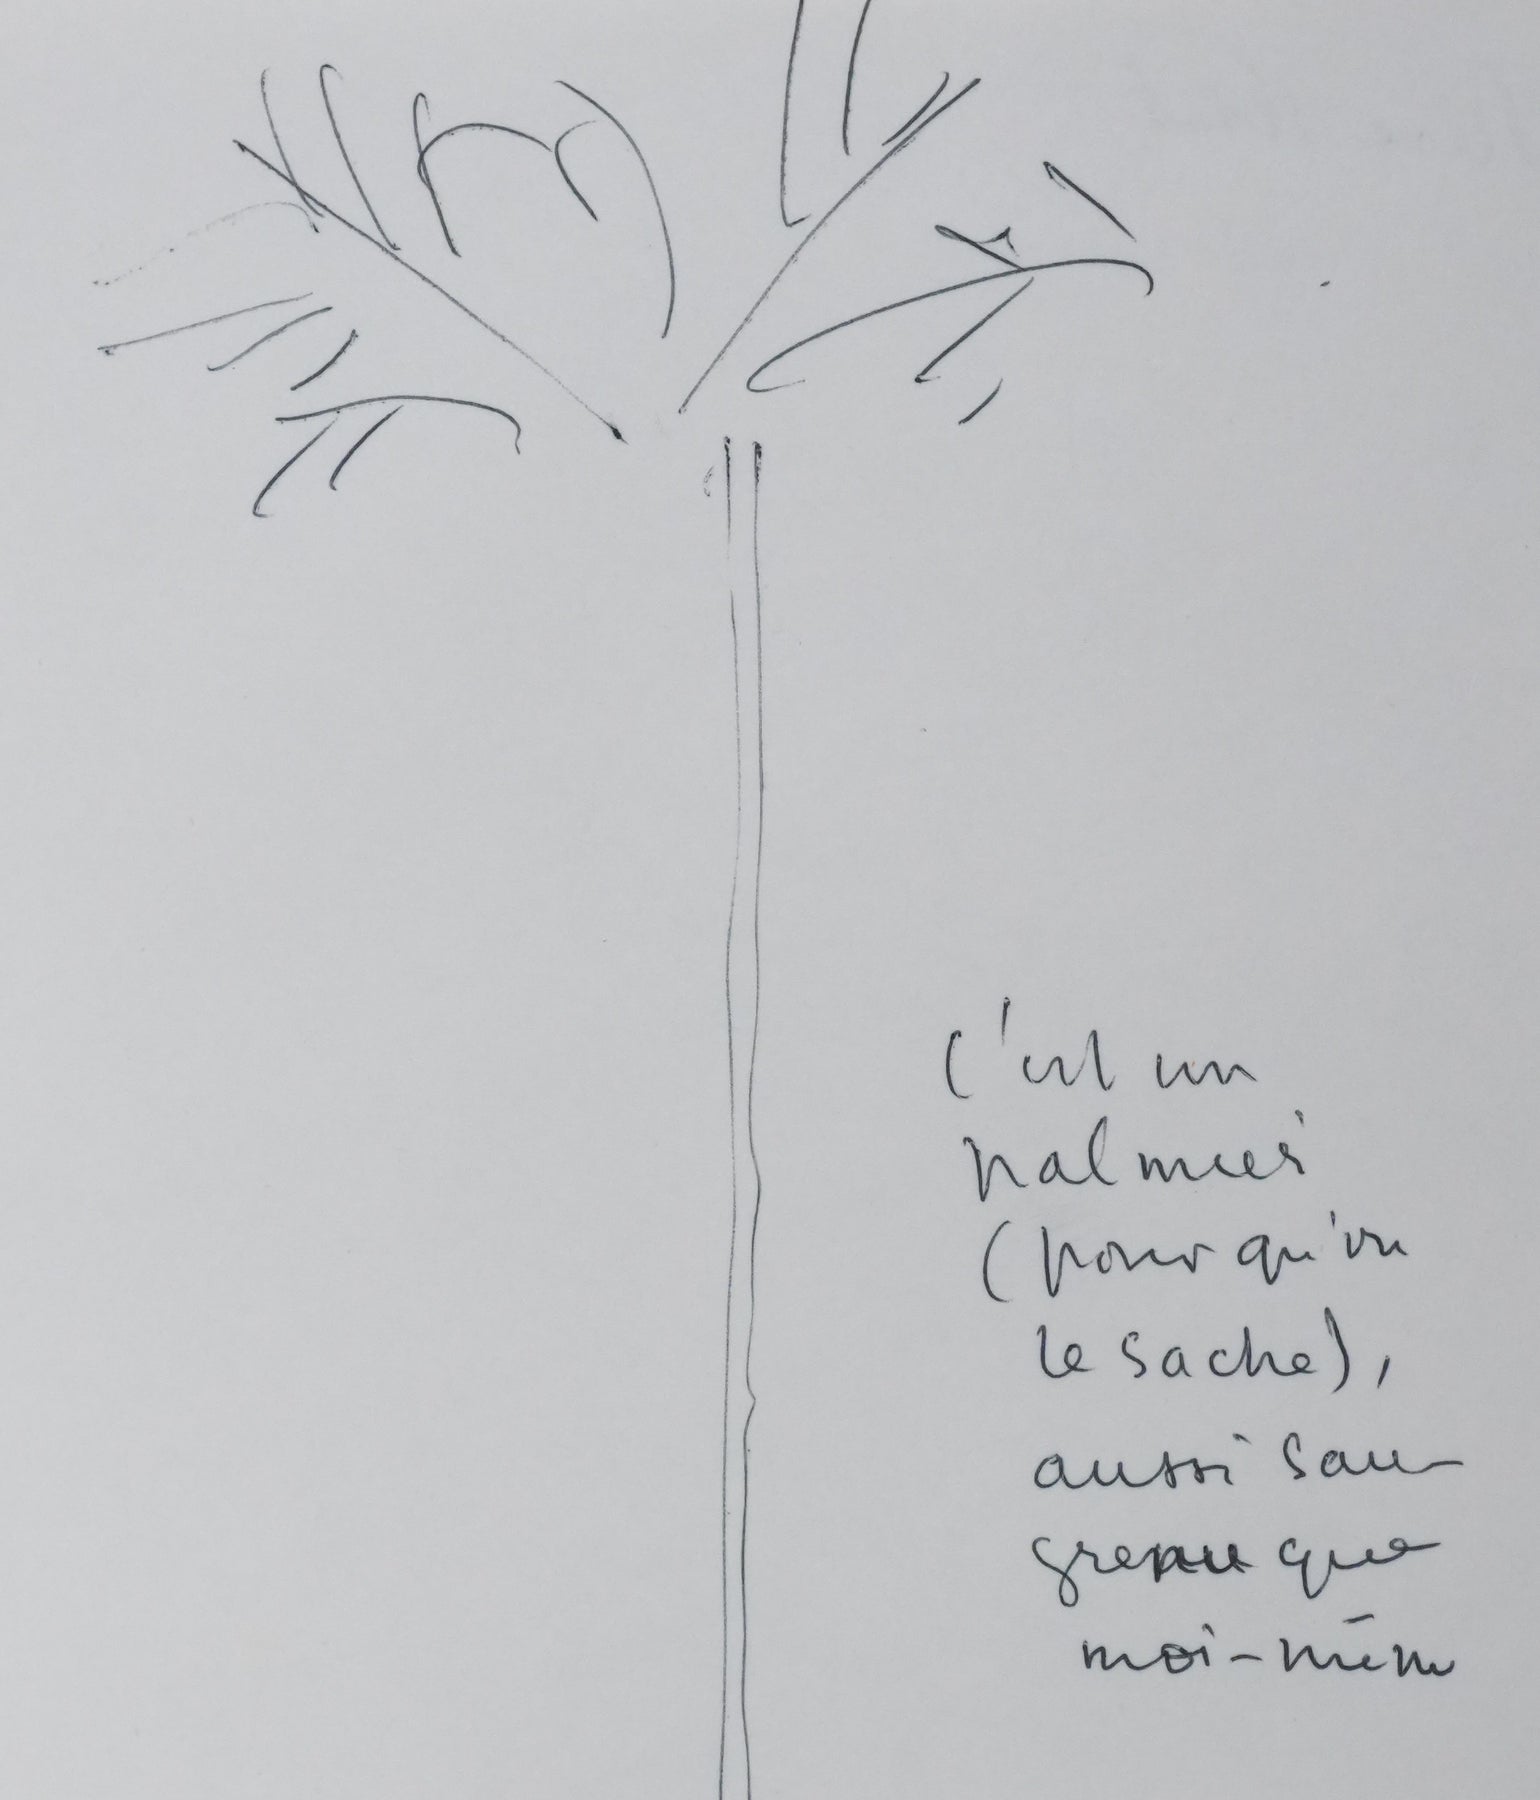 c'est un
palmier
(pour qu'on
le sache),
aussi sau-
grenu que
moi-même